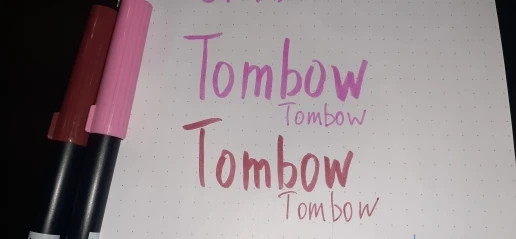 Tombow
Tombow
Tombow
Tombow